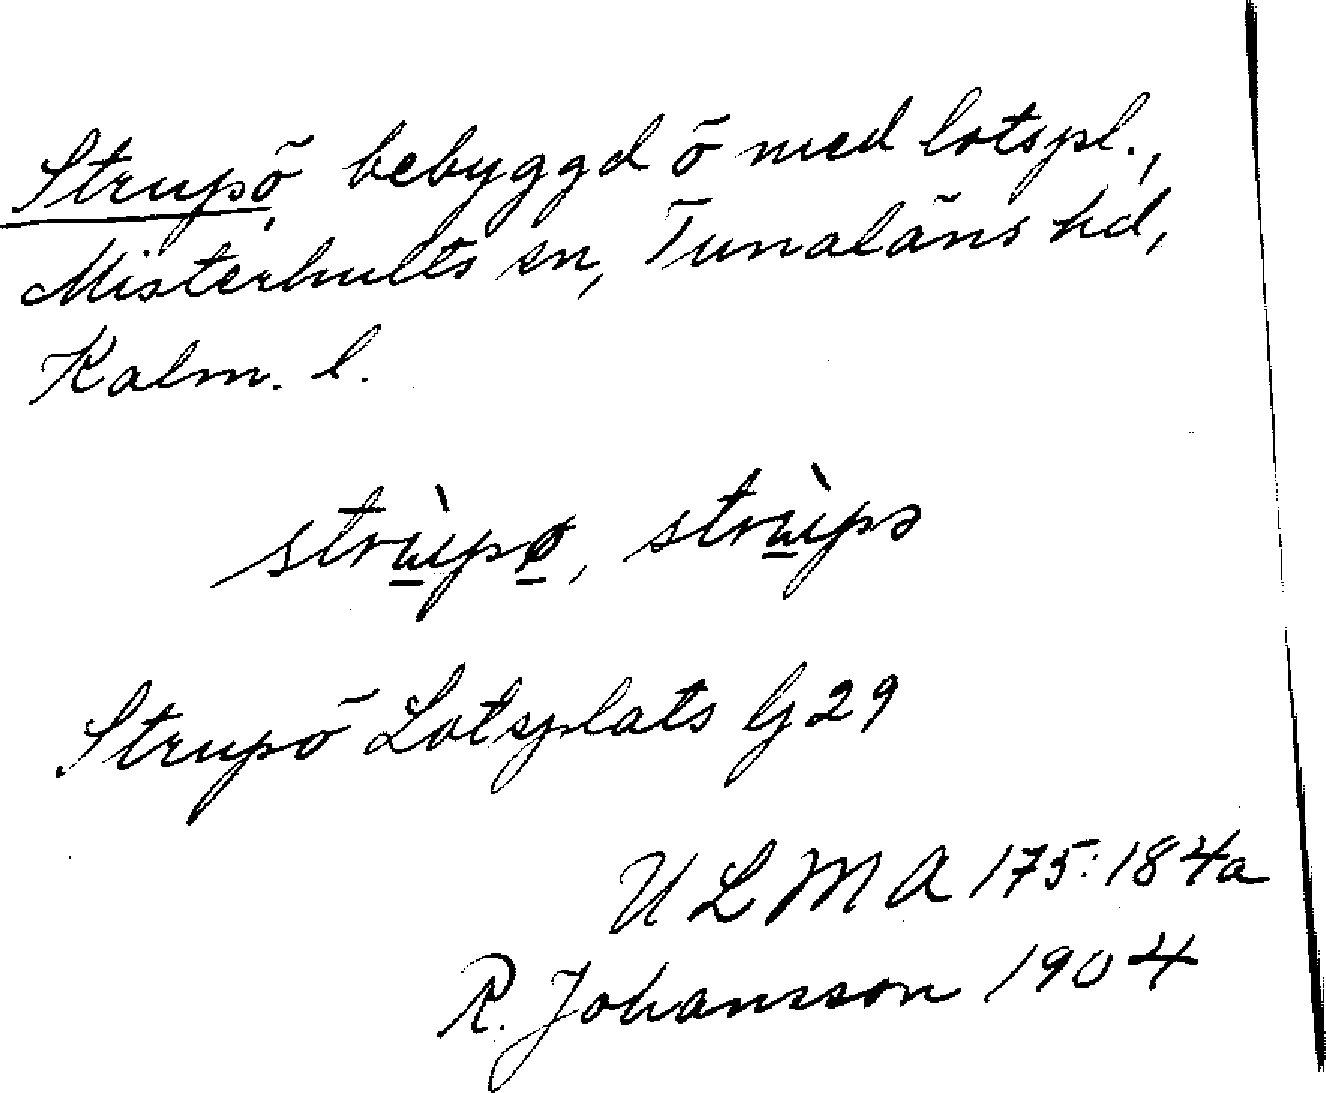 Strupö, bebyggd ö med lotspl.,
Misterhults sn, Tunaläns hd,
Kalm. l.
strùpø, strùpə
Strupö Lotsplats Gj 29
ULMA 175:184a
R. Johansson 1904